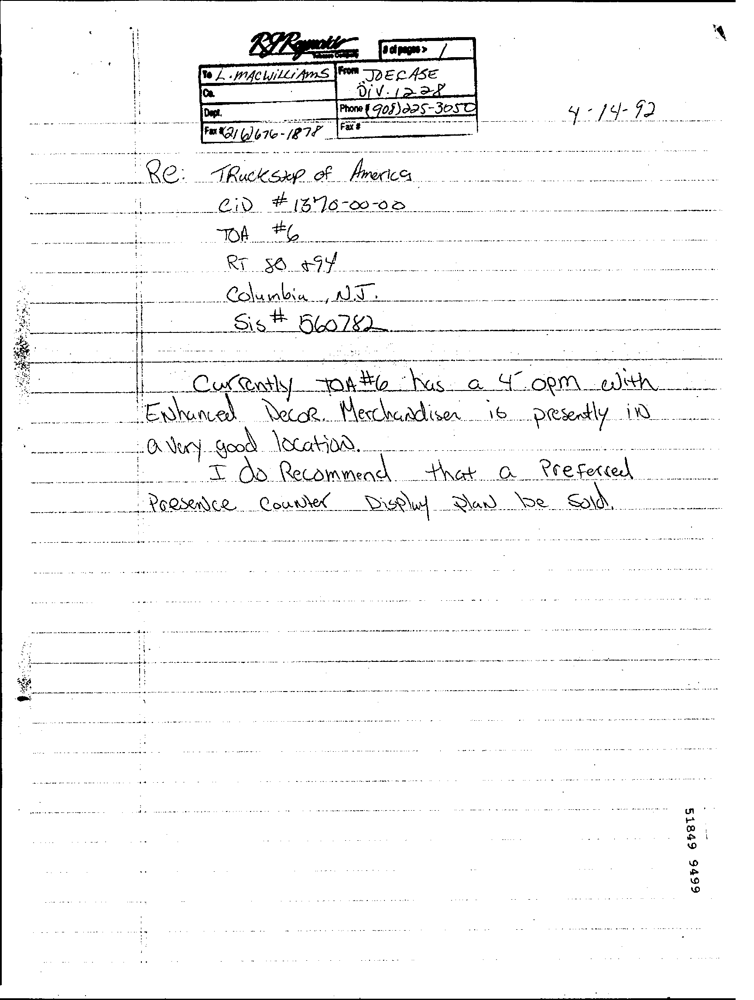 RJ Reynolds
Tobacco Company
# of pages > 1
To L. MACWILLIAMS From JOE CASE
Co. Div. 1228
Dept. Phone # (908) 225-3050
Fax # (216) 676-1878 Fax #
4-14-92
Re: TRuckstop of America
CiD # 1370-00-00
TOA #6
RT 80 +94
Columbia, N.J.
Sis # 560782
Currently TOA#6 has a 4' opm with
Enhanced Decor. Merchandiser is presently in
a very good location.
I do Recommend that a Preferred
Presence Counter Display plan be sold.
51849 9499